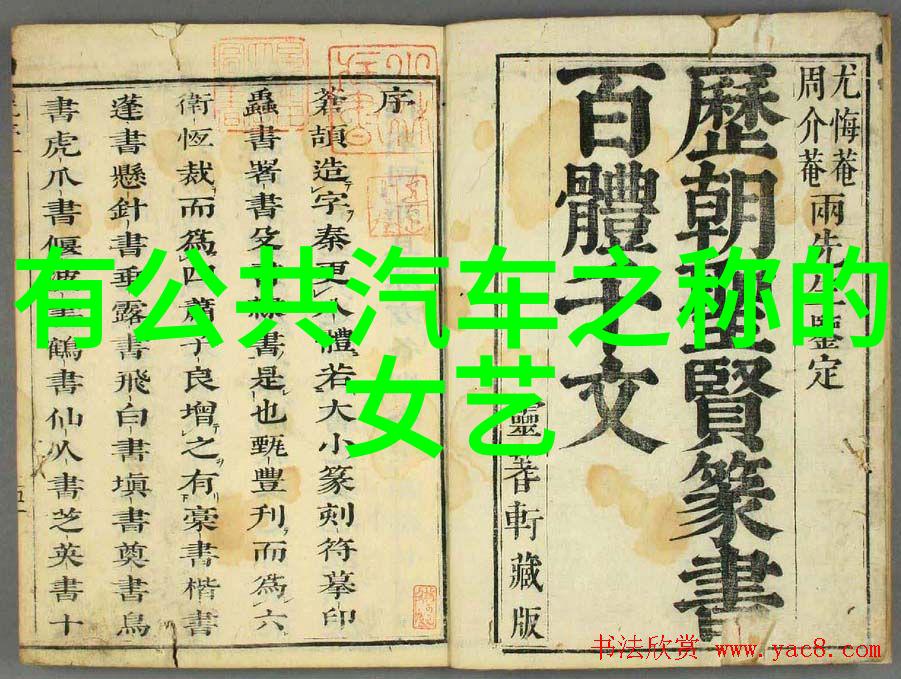 尤悔菴
周介菴
兩先生鑒定
歷朝聖賢篆書
百體千文
靈著軒藏版
序
蒼頡造字秦更八體若大小篆刻符摹印
蟲書署書殳書隸書是也甄豐刊而為六
衛恆裁而為四蕭子良增之有稾書楷書
蓬書懸針書垂露書飛白書塡書奠書鳥
書虎爪書偃波書鶴書仙人書芝英書十
有公共汽车之称的
女艺
书法欣赏 www.yac8.com